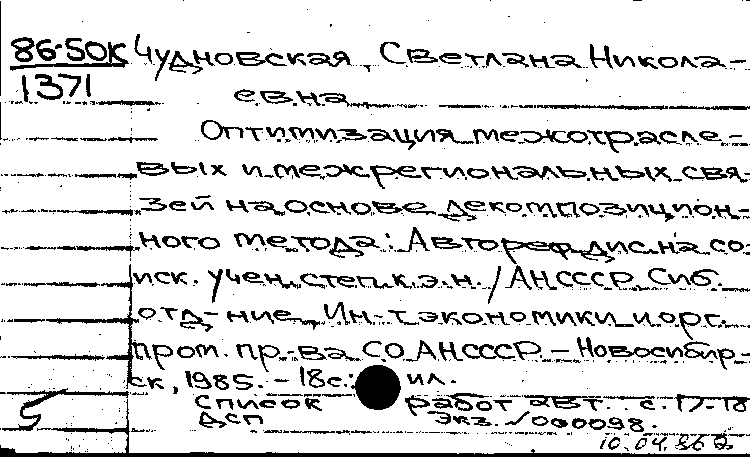 86-50К Чудновская, Светлана Никола-
1371
евна
Оптимизация межотрасле-
вых и межрегиональных свя-
зей на основе декомпозицион-
ного метода: Автореф.дис.на со-
иск. учен.степ.к.э.н. / АН СССР Сиб.
отд-ние, Ин-т экономики и орг.
пром. пр-ва СО АН СССР – Новосибир-
ск, 1985. – 18с.: ил.
Список работ авт. с. 17-18
5 ДСП Экз. √000098.
10.04.86